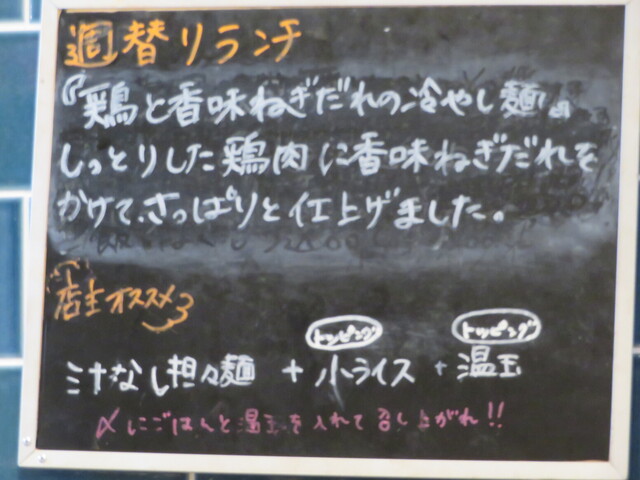 週替りランチ
『鶏と香味ねぎだれの冷やし麺』
しっとりした鶏肉に香味ねぎだれを
かけて、さっぱりと仕上げました。
店主オススメ
トッピング トッピング
汁なし担々麺 + 小ライス + 温玉
〆にごはんと温玉を入れて召し上がれ!!